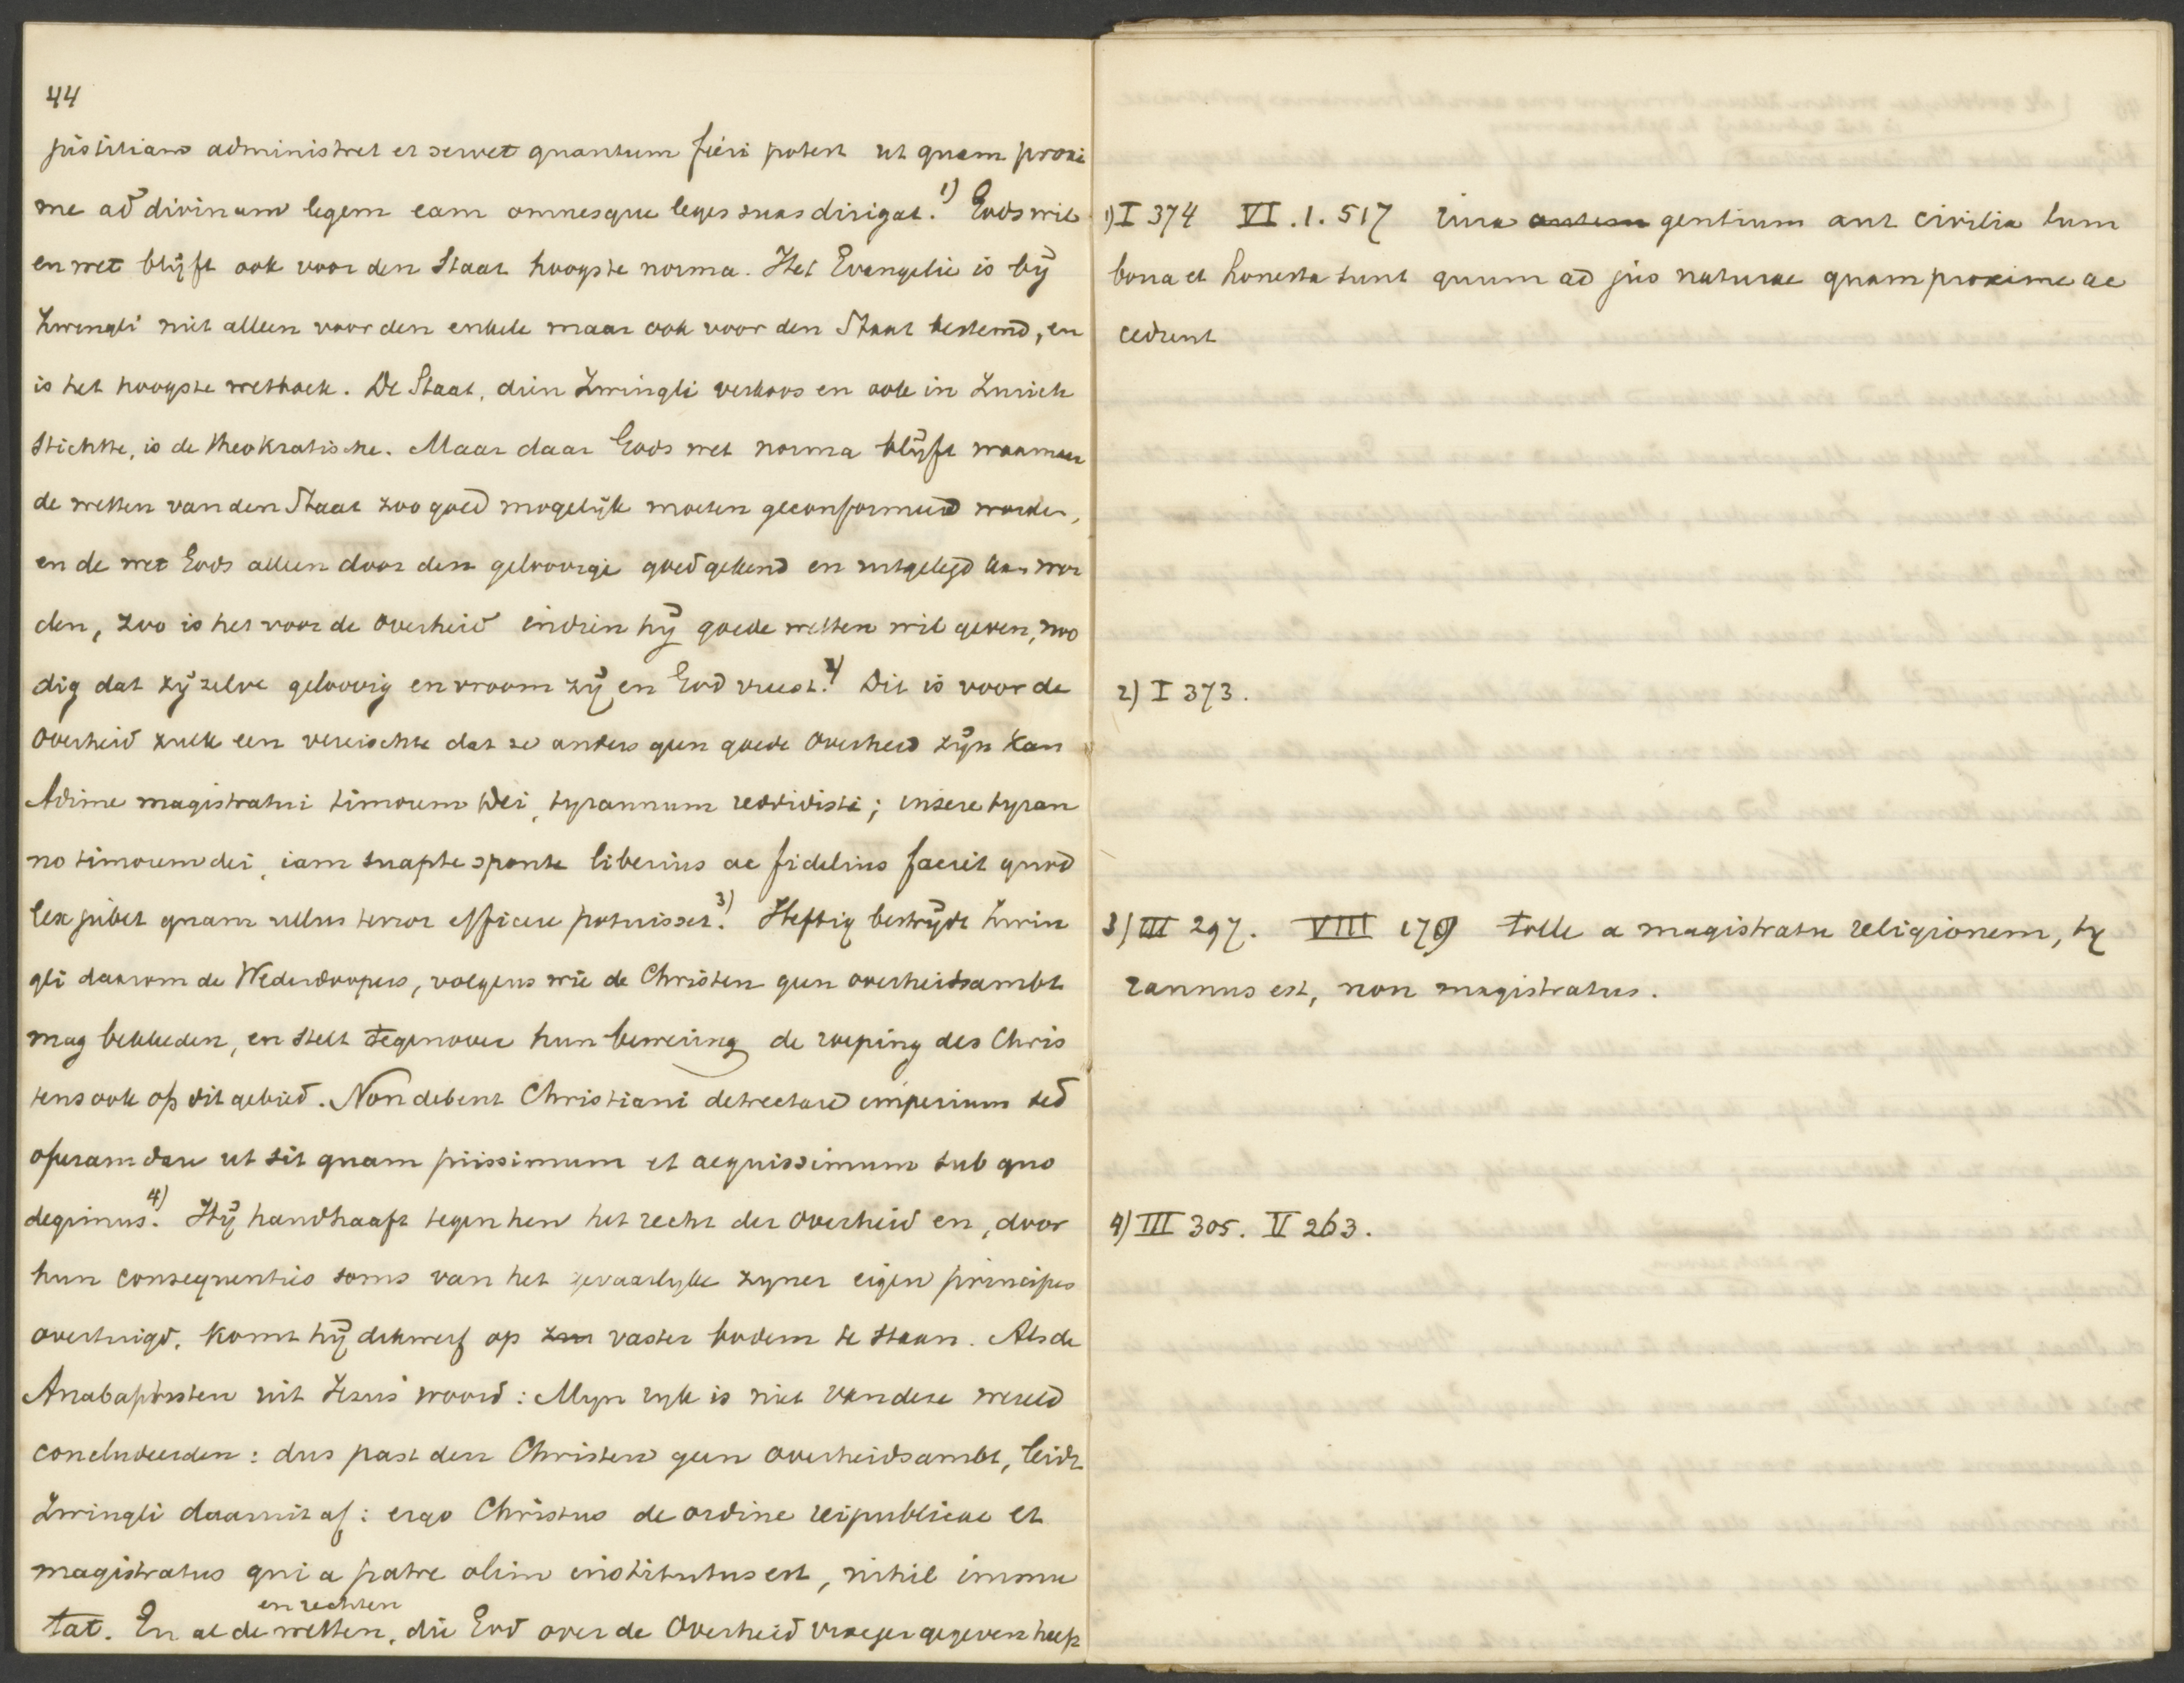 44
justitiam administret et servet quantum fieri potest ut quam proxi
me ad divinam legem eam omnesque leges suas dirigat.1) Gods wil
en wet blijft ook voor den Staat hoogste norma. Het Evangelie is bij
Zwingli niet alleen voor den enkele maar ook voor den Staat bestemd, en
is het hoogste wetboek. De Staat, dien Zwingli verkoos en ook in Zurich
stichtte, is de theokratische. Maar daar Gods wet norma blijft waarnaar
de wetten van den Staat zoo goed mogelijk moeten geconformeerd worden,
en de wet Gods alleen door den geloovige goed gekend en uitgelegd kan wor
den, zoo is het voor de overheid indien hij goede wetten wil geven, noo
dig dat zij zelve geloovig en vroom zij en God vreest.2) Dit is voor de
overheid zulk een vereischte dat ze anders geen goede overheid zijn kan
Adime magistratui timorem Dei, tyrannum reddidisti; insere tyran
no timorem dei, iam suapte sponte liberius ac fidelius faciet quod
lex jubet quam ullus terror efficere potuisset.3) Heftig bestrijdt Zwin
gli daarom de Wederdoopers, volgens wie de Christen geen overheidsambt
mag bekleeden, en stelt tegenover hun bewering de roeping des Chris
tens ook op dit gebied. Non debent Christiani detrectare imperium sed
operam dare ut sit quam piissimum et aequissimum sub quo
degimus.4) Hij handhaaft tegen hen het recht der overheid en, door
hun consequenties soms van het gevaarlyke zyner eigen principes
overtuigd, komt hij dikwerf op zm vaster bodem te staan. Als de
Anabaptisten uit Jezus' woord: Myn ryk is niet van deze wereld
concludeerden: dus past den Christen geen overheidsambt, leidt
Zwingli daaruit af: ergo Christus de ordine reipublicae et
magistratus qui a patre olim institutus est, nihil immu
en rechten
tat. En al de wetten, die God over de Overheid vroeger gegeven heeft
1) I 374 VI.1.517 Jura autem gentium aut civilia tum
bona et honesta sunt quum ad jus naturae quam proxime ac
cedunt
2) I 373.
3) III 297. VIII 179 tolle a magistratu religionem, ty
rannus est, non magistratus.
4) III 305. V 263.